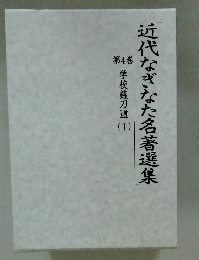 近代なぎなた名著選集
第4巻
学校薙刀道
(1)